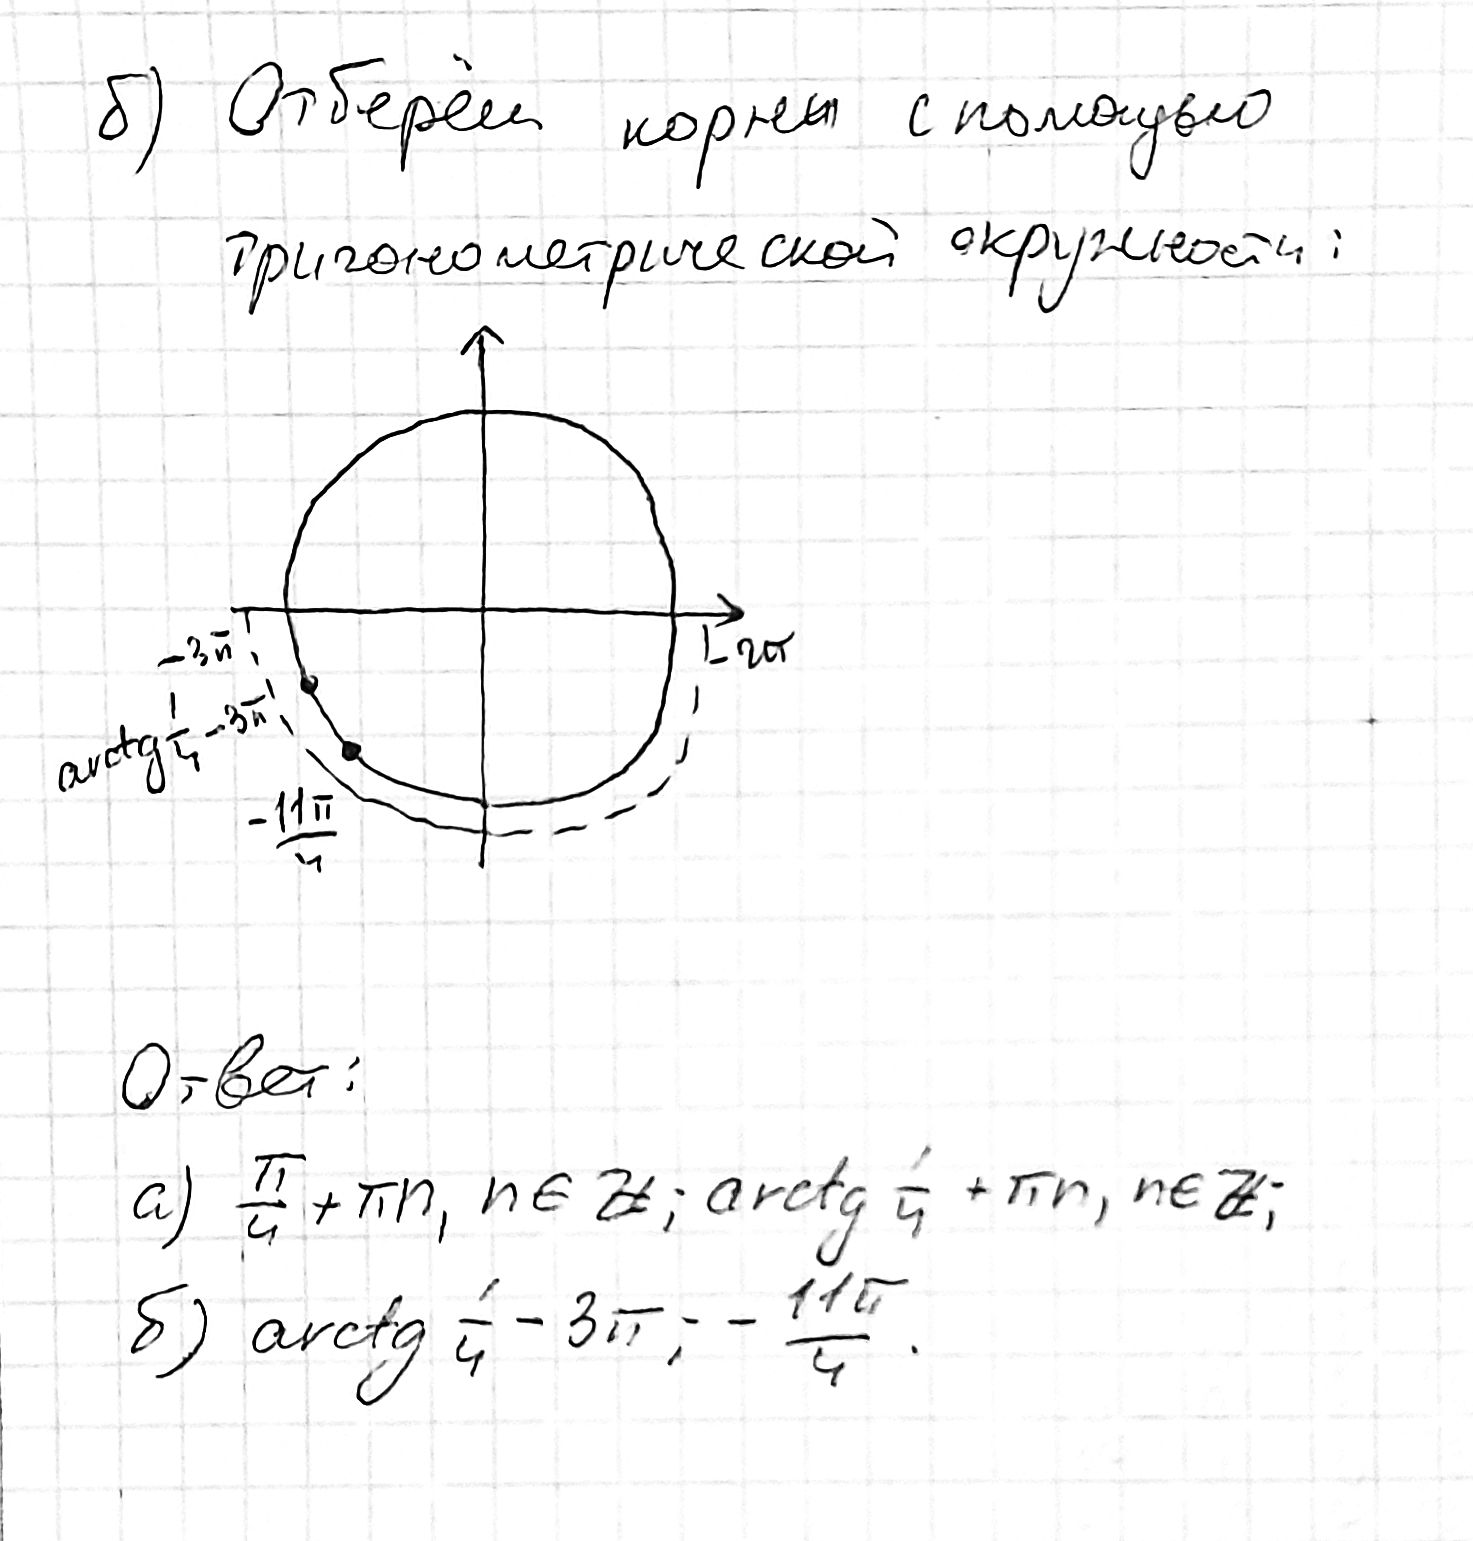 б) Отберём корни с помощью
тригонометрической окружности:
-3π
-2π
arctg 1/4 - 3π
-11π/4
Ответ:
а) π/4 + πn, n ∈ Z; arctg 1/4 + πn, n ∈ Z;
б) arctg 1/4 - 3π; - 11π/4.